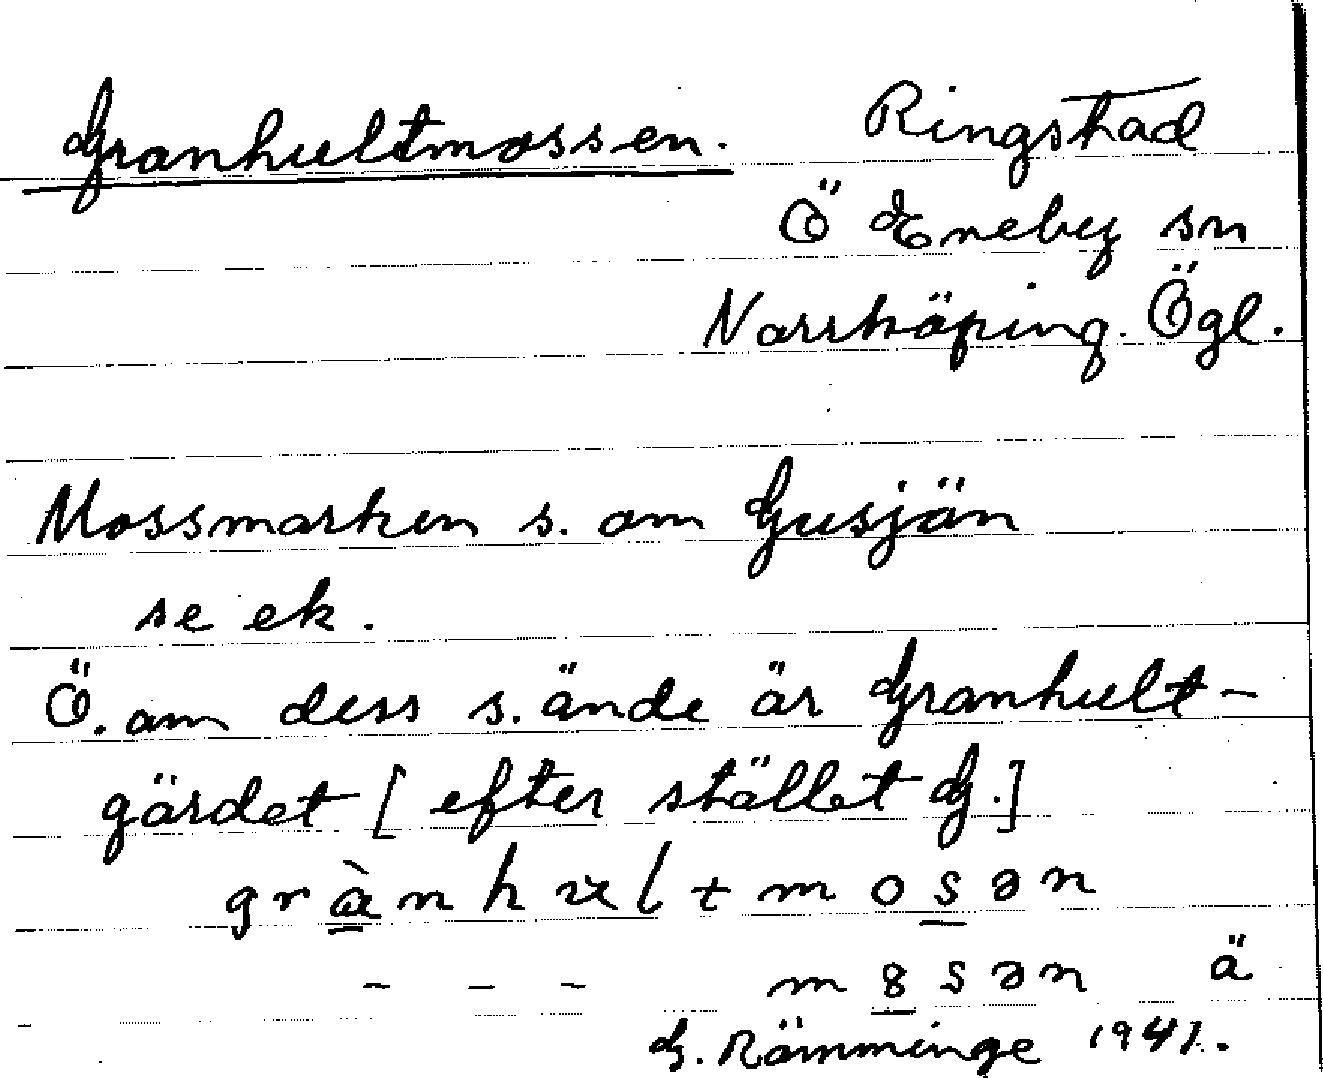 Granhultmossen. Ringstad
Ö Eneby sn
Norrköping. Ögl.
Mossmarken s. om Gusjön
se ek.
Ö. om dess s. ände är Granhult-
gärdet [ efter stället G.]
grànhult mosən
- - - m8sən ä
G. Römminge 1941.